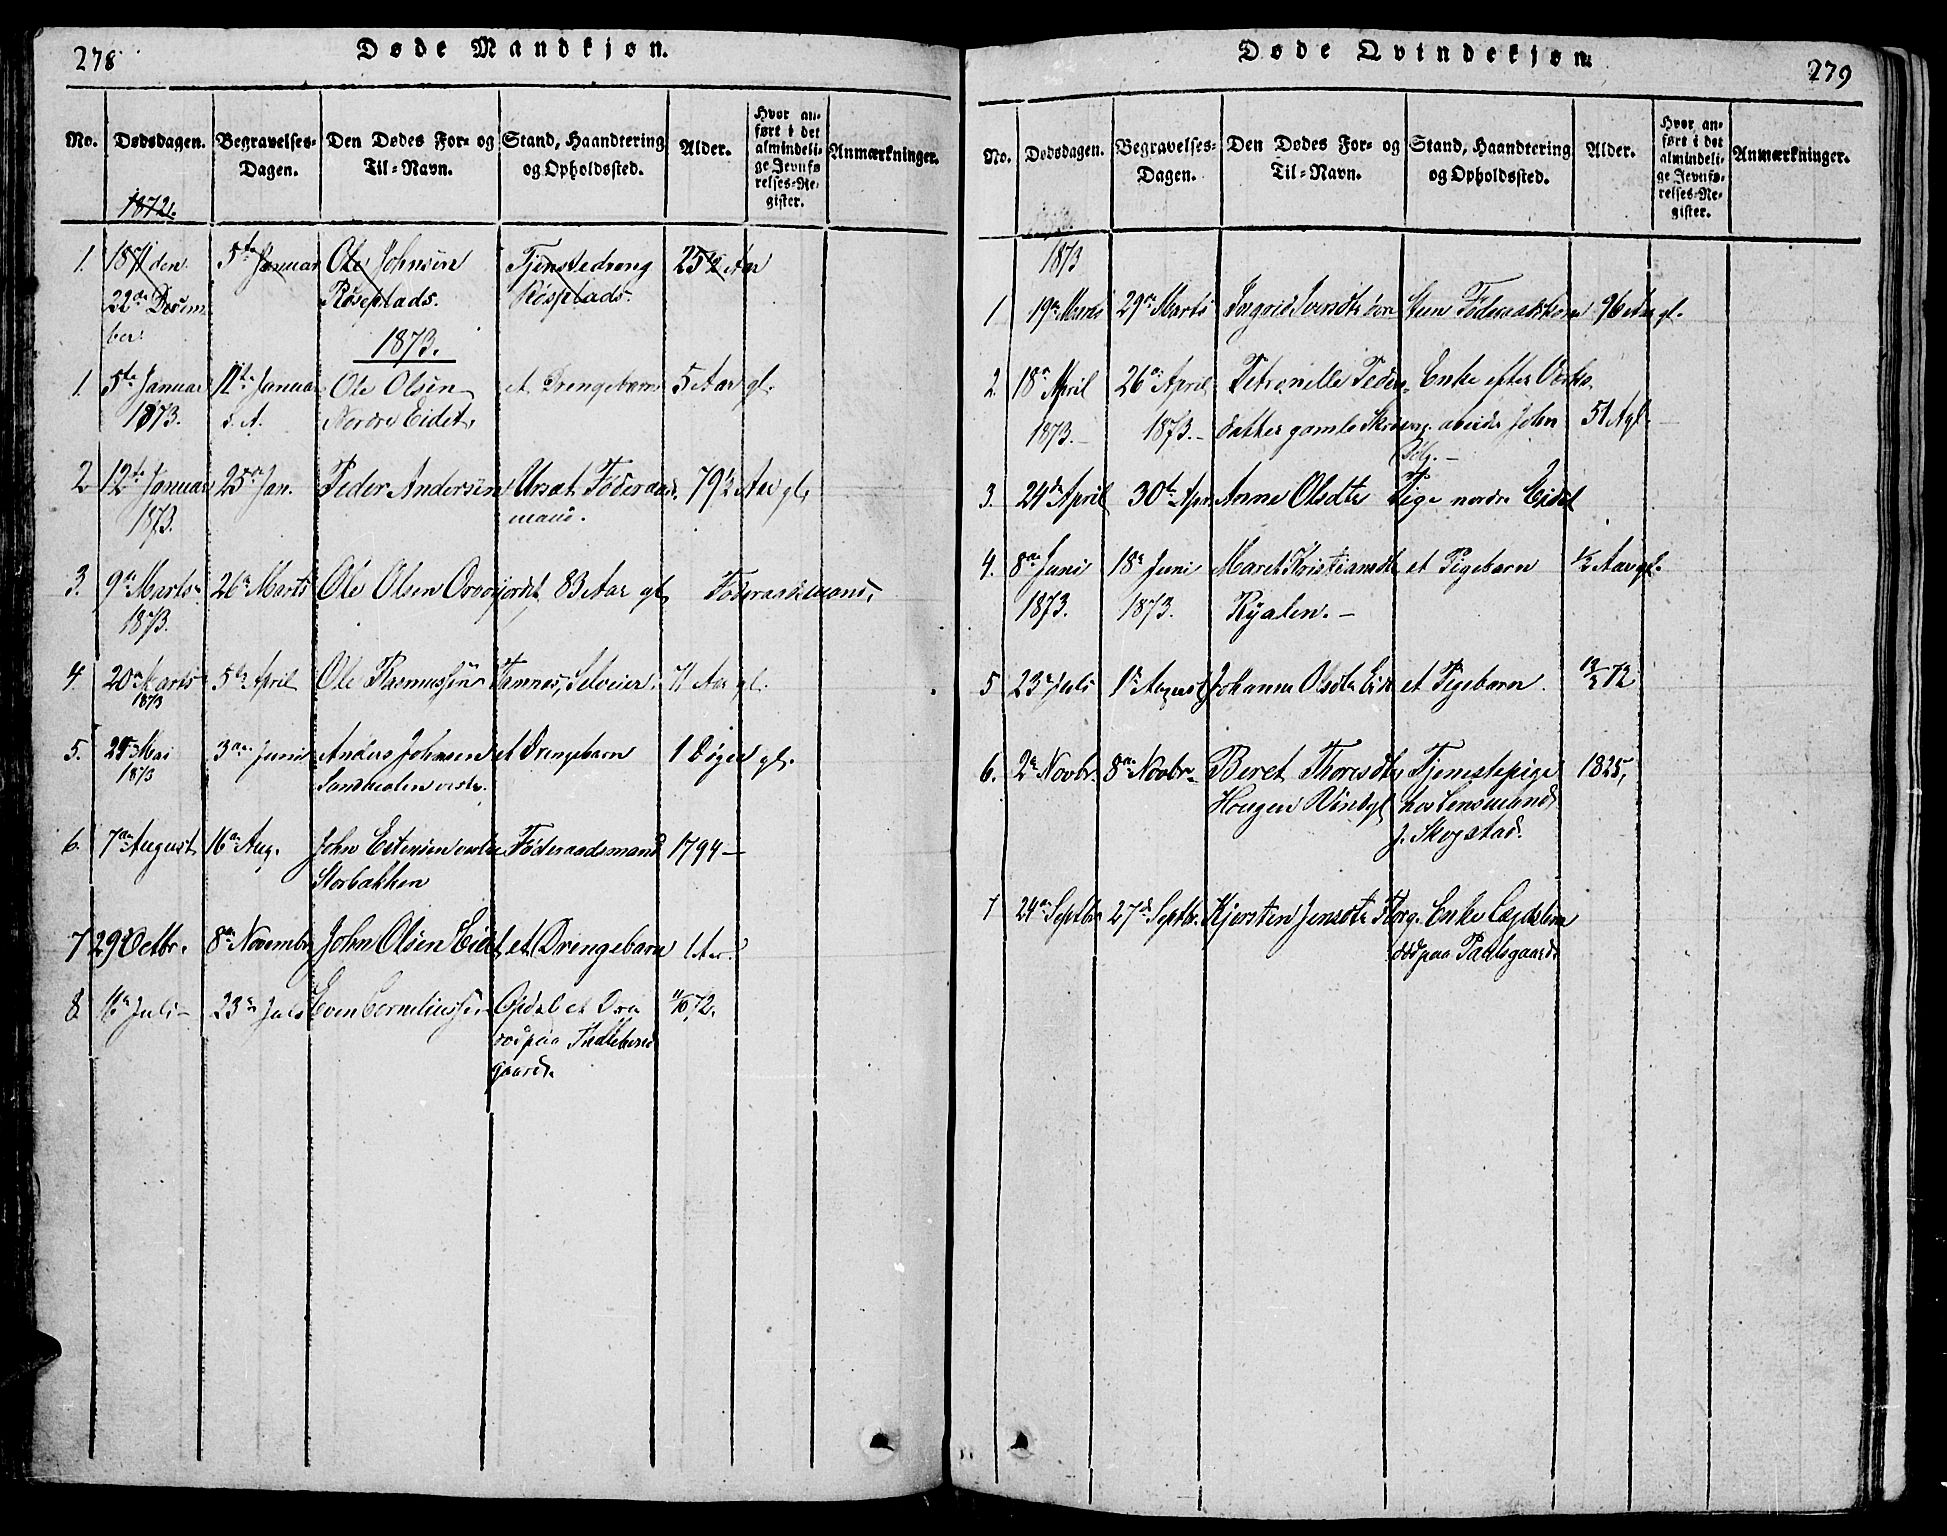 278
Døde Mandkjøn.
No. Dødsdagen. Begravelses-Dagen. Den Dødes For- og Til-Navn. Stand, Haandtering og Opholdssted. Alder. Hvor anført i det almindelige Jevnførelses-Register. Anmærkninger.
1872.
1. 1871 den 5te Januar Ole Johnsen Tjenstedreng 25½ Aar
22de Decem Røseplads. Røsplads.
ber.
1873.
1. 5te Januar 11te Januar Ole Olsen et Drengebarn 5 Aar gl.
1873. s. A. Nordre Eidet,
2. 12te Januar 25de Jan. Peder Andersen Ursat Føderaads 79½ Aar gl.
1873. mand.
3. 9de Marts 26de Marts Ole Olsen 83 Aar gl. Føderaadsmand,
1873.
4. 20de Marts 5te April Ole Rasmussen Tamnes, Selveier. 71 Aar gl.
1873
5. Mai 3de Juni Anders Johnsen et Drengebarn 1 Døgn gl.
1873 vestre.
6. 7de August 16de Aug. John Estensen Føderaadsmand 1794 —
Storbakken
7 29 Octbr. 8de Novembr John Olsen Eidet, et Drengebarn 1 Aar.
8. 16de Juli 23de Juli Even Corneliussen Opdal et Dra
død paa
gaard.
Døde Qvindekjøn.
279
No. Dødsdagen. Begravelses-Dagen. Den Dødes For- og Til-Navn. Stand, Haandtering og Opholdssted. Alder. Hvor anført i det almindelige Jevnførelses-Register. Anmærkninger.
1873
1 19de Marts 29de Marts Ingrid Føderaadskone 96 Aar gl.
2. 18de April 26de April Petronelle Peders Enke efter Værks
1873. — 1873. — datter gamle arbeider John 51 A gl.
3. 24de April 30te Apr. Anne Olsdtr Pige nordre Eidet
4. 8de Juni 18de Juni Maret Kristiansdtr et Pigebarn ½ Aar gl.
1873. 1873. Ryalen. —
5 23de Juli 1ste August Johanna Olsdtr Eid et Pigebarn.
6. 2de Novbr. 8de Novbr. Beret Thoresdtr Tjenestepige 1825,
Hougen hos Lensmand
J. Skogstad.
7 24de Septbr 27de Septbr. Kjersten Jensdtr Enke
død paa Paulsgaard.